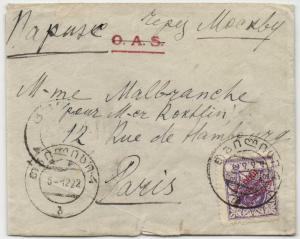 Парижъ Через Москву
O. A. S.
M-me Malbranche
pour M-er Koechlin
12 Rue de Hambourg
Paris
5-12 22